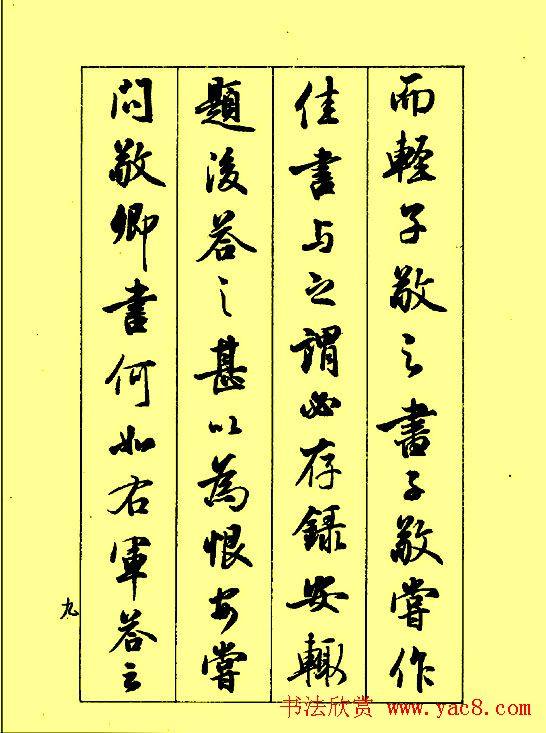 而輕子敬之書子敬嘗作
佳書与之謂必存録安輒
題後答之甚以為恨安嘗
問敬卿書何如右軍答云
九
书法欣赏 www.yac8.com